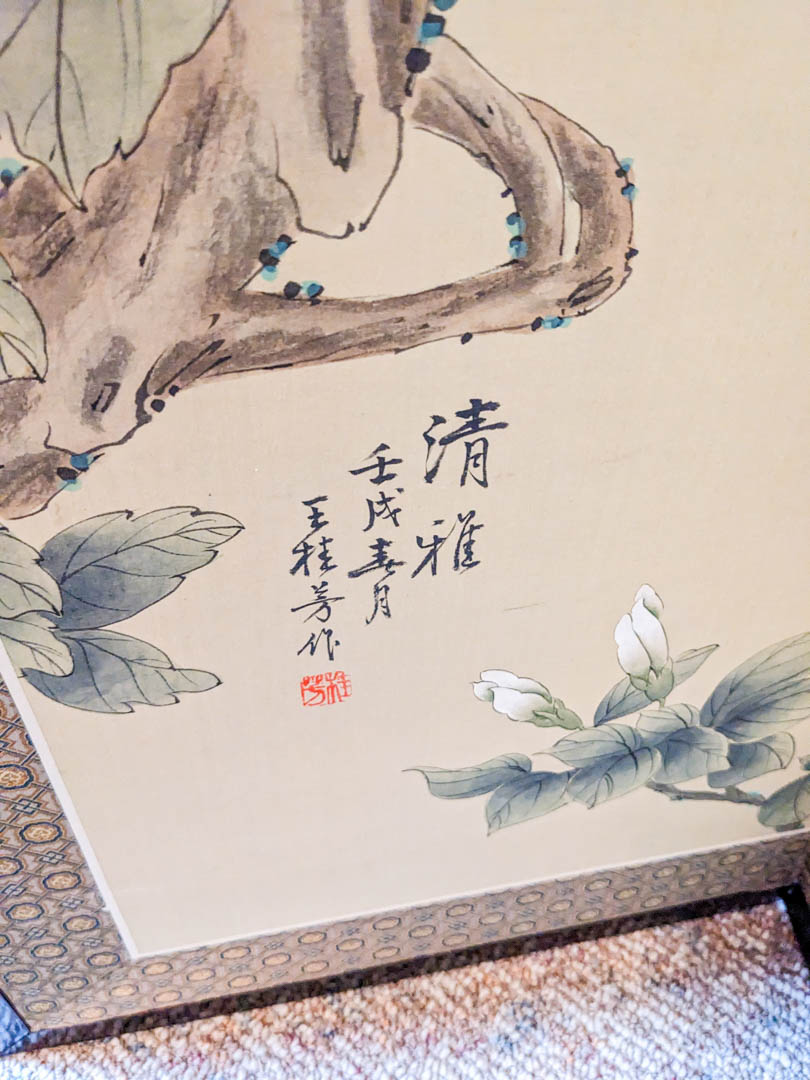 清雅
壬戌春月
王桂芳作
桂芳